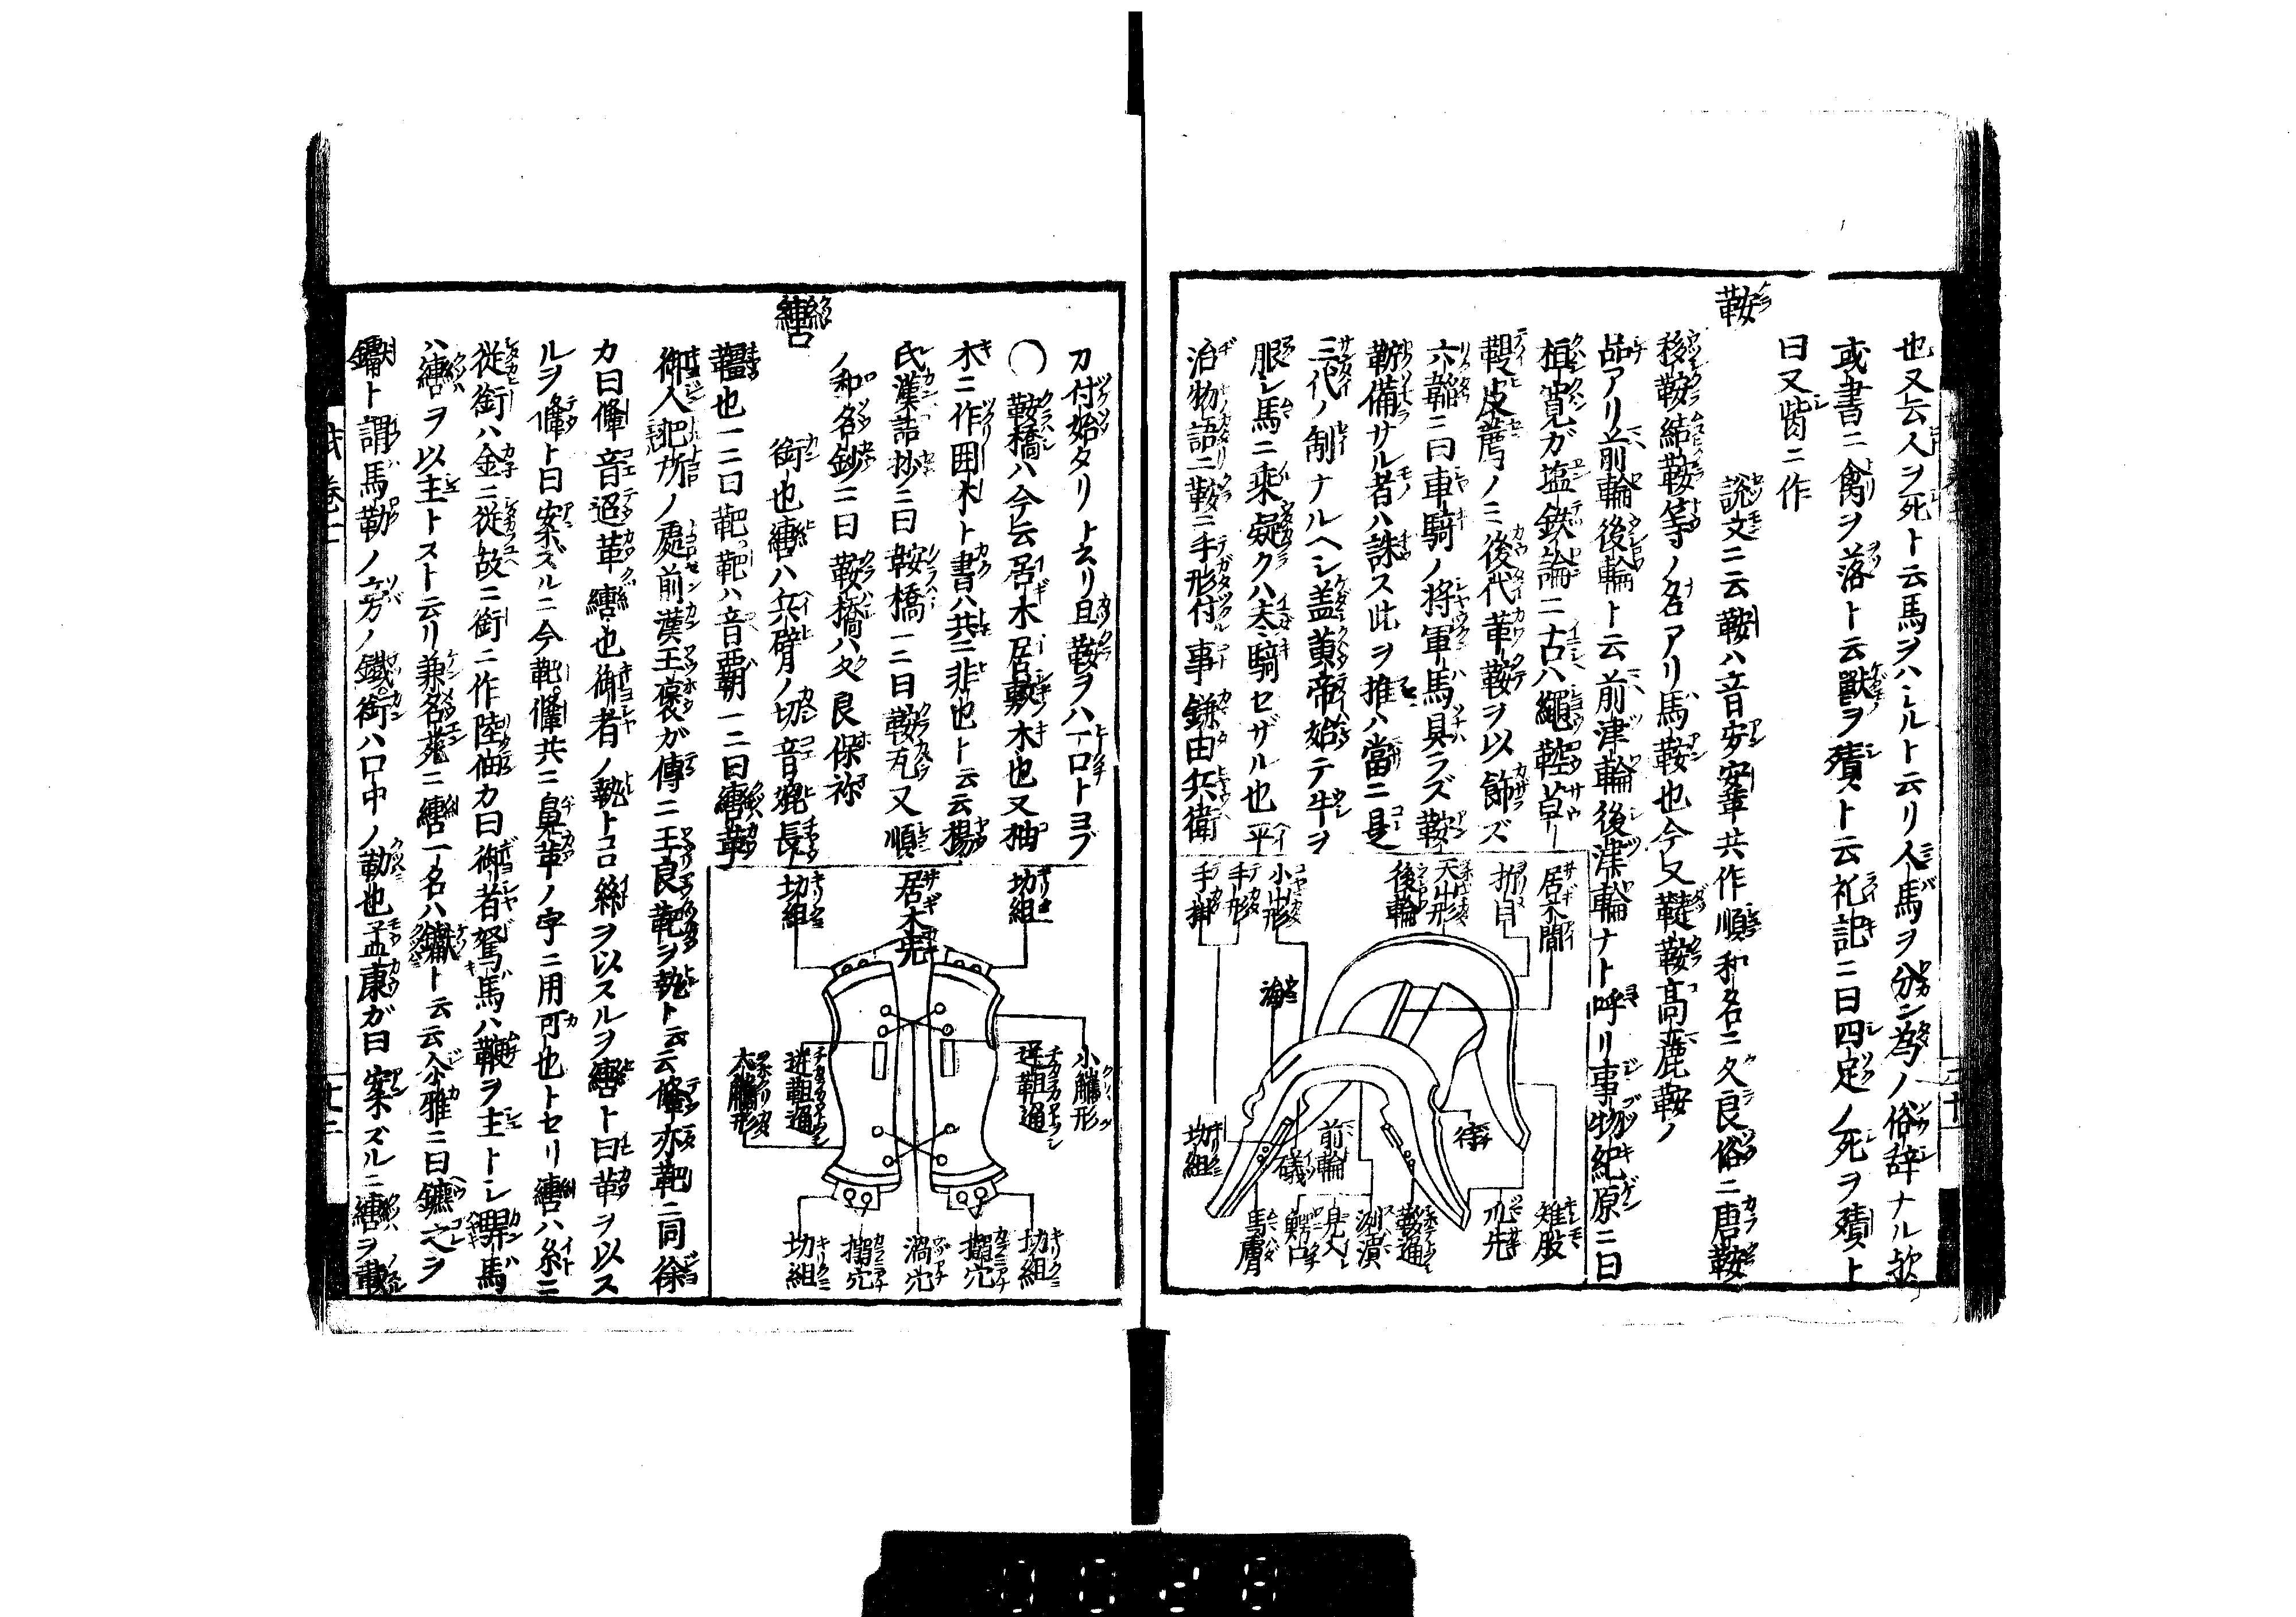 也又云人ヲ死ト云馬ヲハシルト云リ人馬ヲ分ン為ノ俗辞ナル歟
或書ニ禽ヲ落ト云獣ヲ殰ト云礼記ニ曰四足ノ死ヲ殰ト
曰又胔ニ作
鞍
説文ニ云鞍ハ音安安革共作順和名ニ久良俗ニ唐鞍
移鞍結鞍等ノ名アリ馬鞍也今又鞍高麗鞍ノ
品アリ前輪後輪ト云前津輪後津輪ナト呼リ事物紀原ニ曰
桓寛ガ塩鉄論ニ古ハ縄鞚草
鞮皮薦ノミ後代革鞍ヲ以飾ズ
六韜ニ曰車騎ノ将軍馬具ラズ鞍
勒備サル者ハ誅ス此ヲ推ハ當ニ是
三代ノ制ナルヘシ盖黄帝始テ牛ヲ
服シ馬ニ乗疑クハ未騎セザル也平
治物語ニ鞍ニ手形付事鎌田兵衛
居木間
折目
天山形
後輪
小山形
手形
手掛
海
切組
前輪
礒
雉股
爪先
鞍通
洲濱
鰐口
馬膚
刀付始タリト云リ且鞍ヲハ一口トヨブ
〇鞍橋ハ今云居木居敷木也又柚
木ニ作囲木ト書ハ共ニ非也ト云云楊
氏漢語抄ニ曰鞍橋一ニ曰鞍瓦又順
ノ和名鈔ニ曰鞍橋ハ久良保祢
轡
銜也轡ハ兵臂ノ切音
韁也一ニ曰靶靶ハ音覇一ニ曰轡革
御人把所ノ處前漢王褒が傳ニ王良靶ヲ執ト云云鞗亦靶ニ同徐
カ曰鞗音迢革轡也御者ノ執トコロ絲ヲ以スルヲ轡ト曰革ヲ以ス
ルヲ鞗ト曰案ズルニ今靶鞗共ニ鼻革ノ字ニ用可也トセリ轡ハ糸ニ
従銜ハ金ニ従故ニ銜ニ作陸佃カ曰御者駑馬ハ鞭ヲ主トシ駻馬
ハ轡ヲ以主トスト云リ兼名苑ニ轡一名ハ钀ト云云尓雅ニ曰鑣之ヲ
钀ト謂馬勒ノ旁ノ鐵銜ハ口中ノ勒也孟康ガ曰案ズルニ轡ヲ
切組
居木先
切組
小䐉形
逆靼通
逆靼通
大䐉形
切組
搦穴
渦穴
搦穴
切組